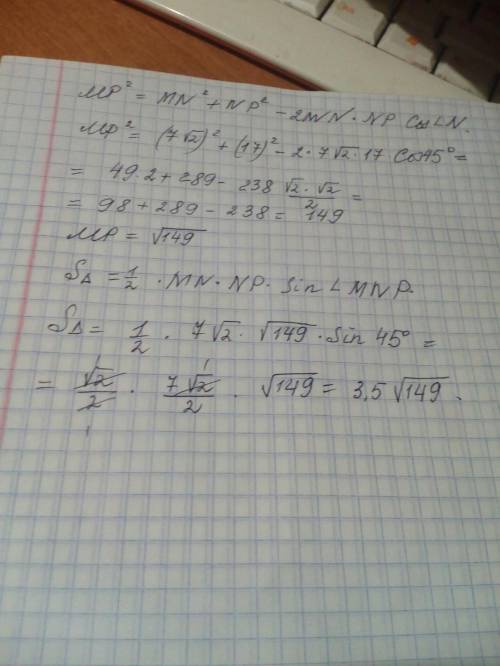 MP² = MN² + NP² - 2MN · NP Cos∠N.
MP² = (7√2)² + (17)² - 2 · 7√2 · 17 Cos45° =
= 49 · 2 + 289 - 238 √2 · √2 / 2 =
= 98 + 289 - 238 = 149
MP = √149
S∆ = 1/2 · MN · NP · Sin ∠MNP.
S∆ = 1/2 · 7√2 · √149 · Sin 45° =
= √2/2 · 7√2/2 · √149 = 3,5 √149.